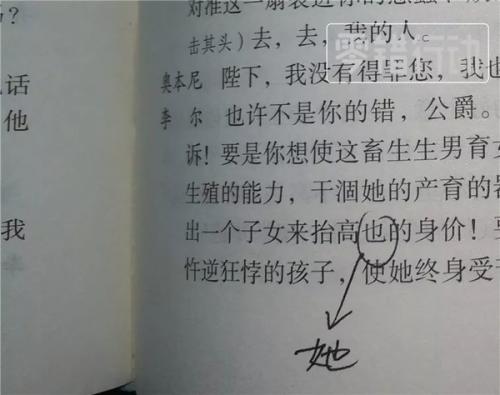 零错行动
话
他
我
击其头）去，去，我的人。
奥本尼 陛下，我没有得罪您，我也
李尔 也许不是你的错，公爵。
诉！要是你想使这畜生生男育女
生殖的能力，干涸她的产育的器
出一个子女来抬高也的身价！
忤逆狂悖的孩子，使她终身受
她